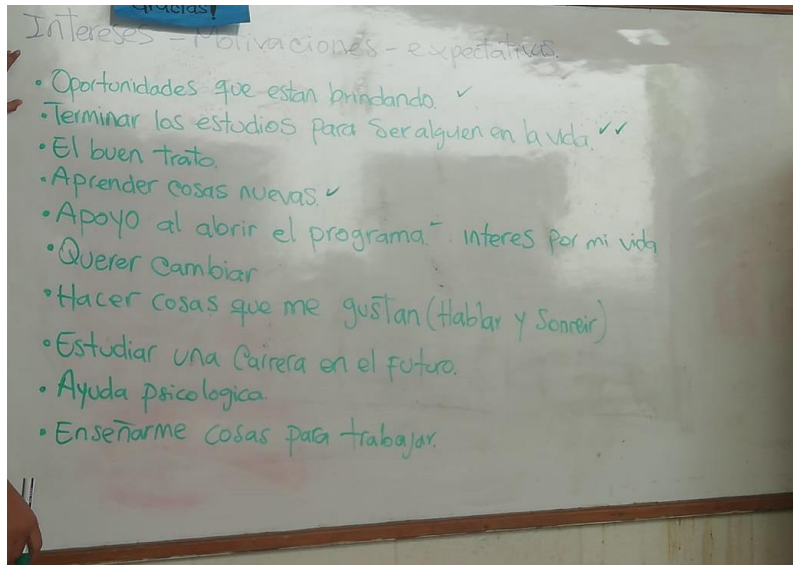 Gracias!
Intereses - Motivaciones - expectativas.
• Oportunidades que estan brindando. ✓
• Terminar los estudios para ser alguien en la vida. ✓✓
• El buen trato.
• Aprender cosas nuevas. ✓
• Apoyo al abrir el programa. - interes por mi vida
• Querer cambiar
• Hacer cosas que me gustan (Hablar y Sonreir)
• Estudiar una Carrera en el futuro.
• Ayuda psicologica.
• Enseñarme cosas para trabajar.